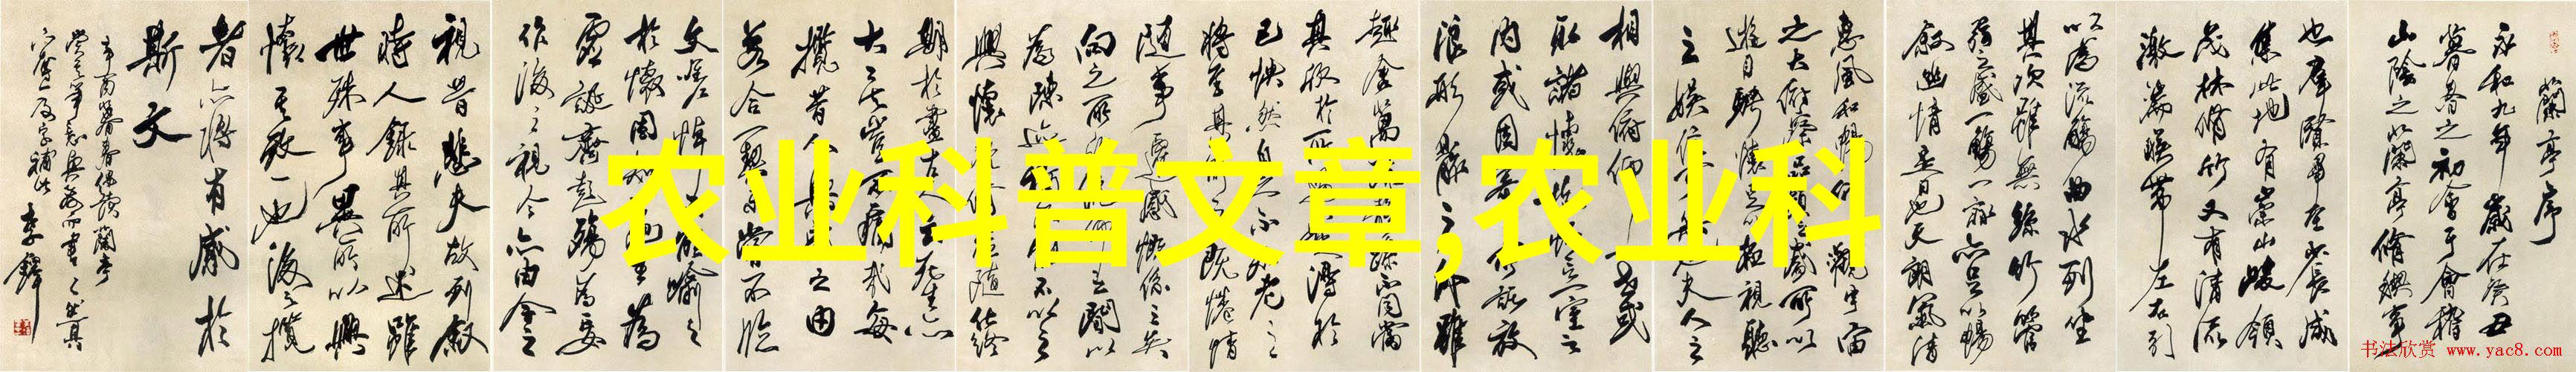 蘭亭序
永和九年歲在癸丑
暮春之初會于會稽
山陰之蘭亭脩禊事
也羣賢畢至少長咸
集此地有崇山峻領
茂林脩竹又有清流
激湍暎帶左右引
以為流觴曲水列坐
其次雖無絲竹管
弦之盛一觴一詠亦足以暢
敘幽情是日也天朗氣清
惠風和暢仰觀宇宙
之大俯察品類之盛所以
遊目騁懷足以極視聽
之娛信可樂也夫人之
相與俯仰一世或
取諸懷抱悟言一室之
內或因寄所託放
浪形骸之外雖
趣舍萬殊靜躁不同當
其欣於所遇暫得於
己怏然自足不知老之
將至及其所之既惓情
隨事遷感慨係之矣
向之所欣俛仰之間以
為陳迹猶不能不以之
興懷況脩短隨化終
期於盡古人云死生亦
大矣豈不痛哉每
攬昔人興感之由
若合一契未嘗不臨
文嗟悼不能喻之
於懷固知一死生為
虛誕齊彭殤為妄
作後之視今亦由今之
視昔悲夫故列敘
時人錄其所述雖
世殊事異所以興
懷其致一也後之攬
者亦將有感於
斯文
辛酉暮春偶讀蘭亭
李鐸
农业科普文章,农业科
书法欣赏 www.yac8.com